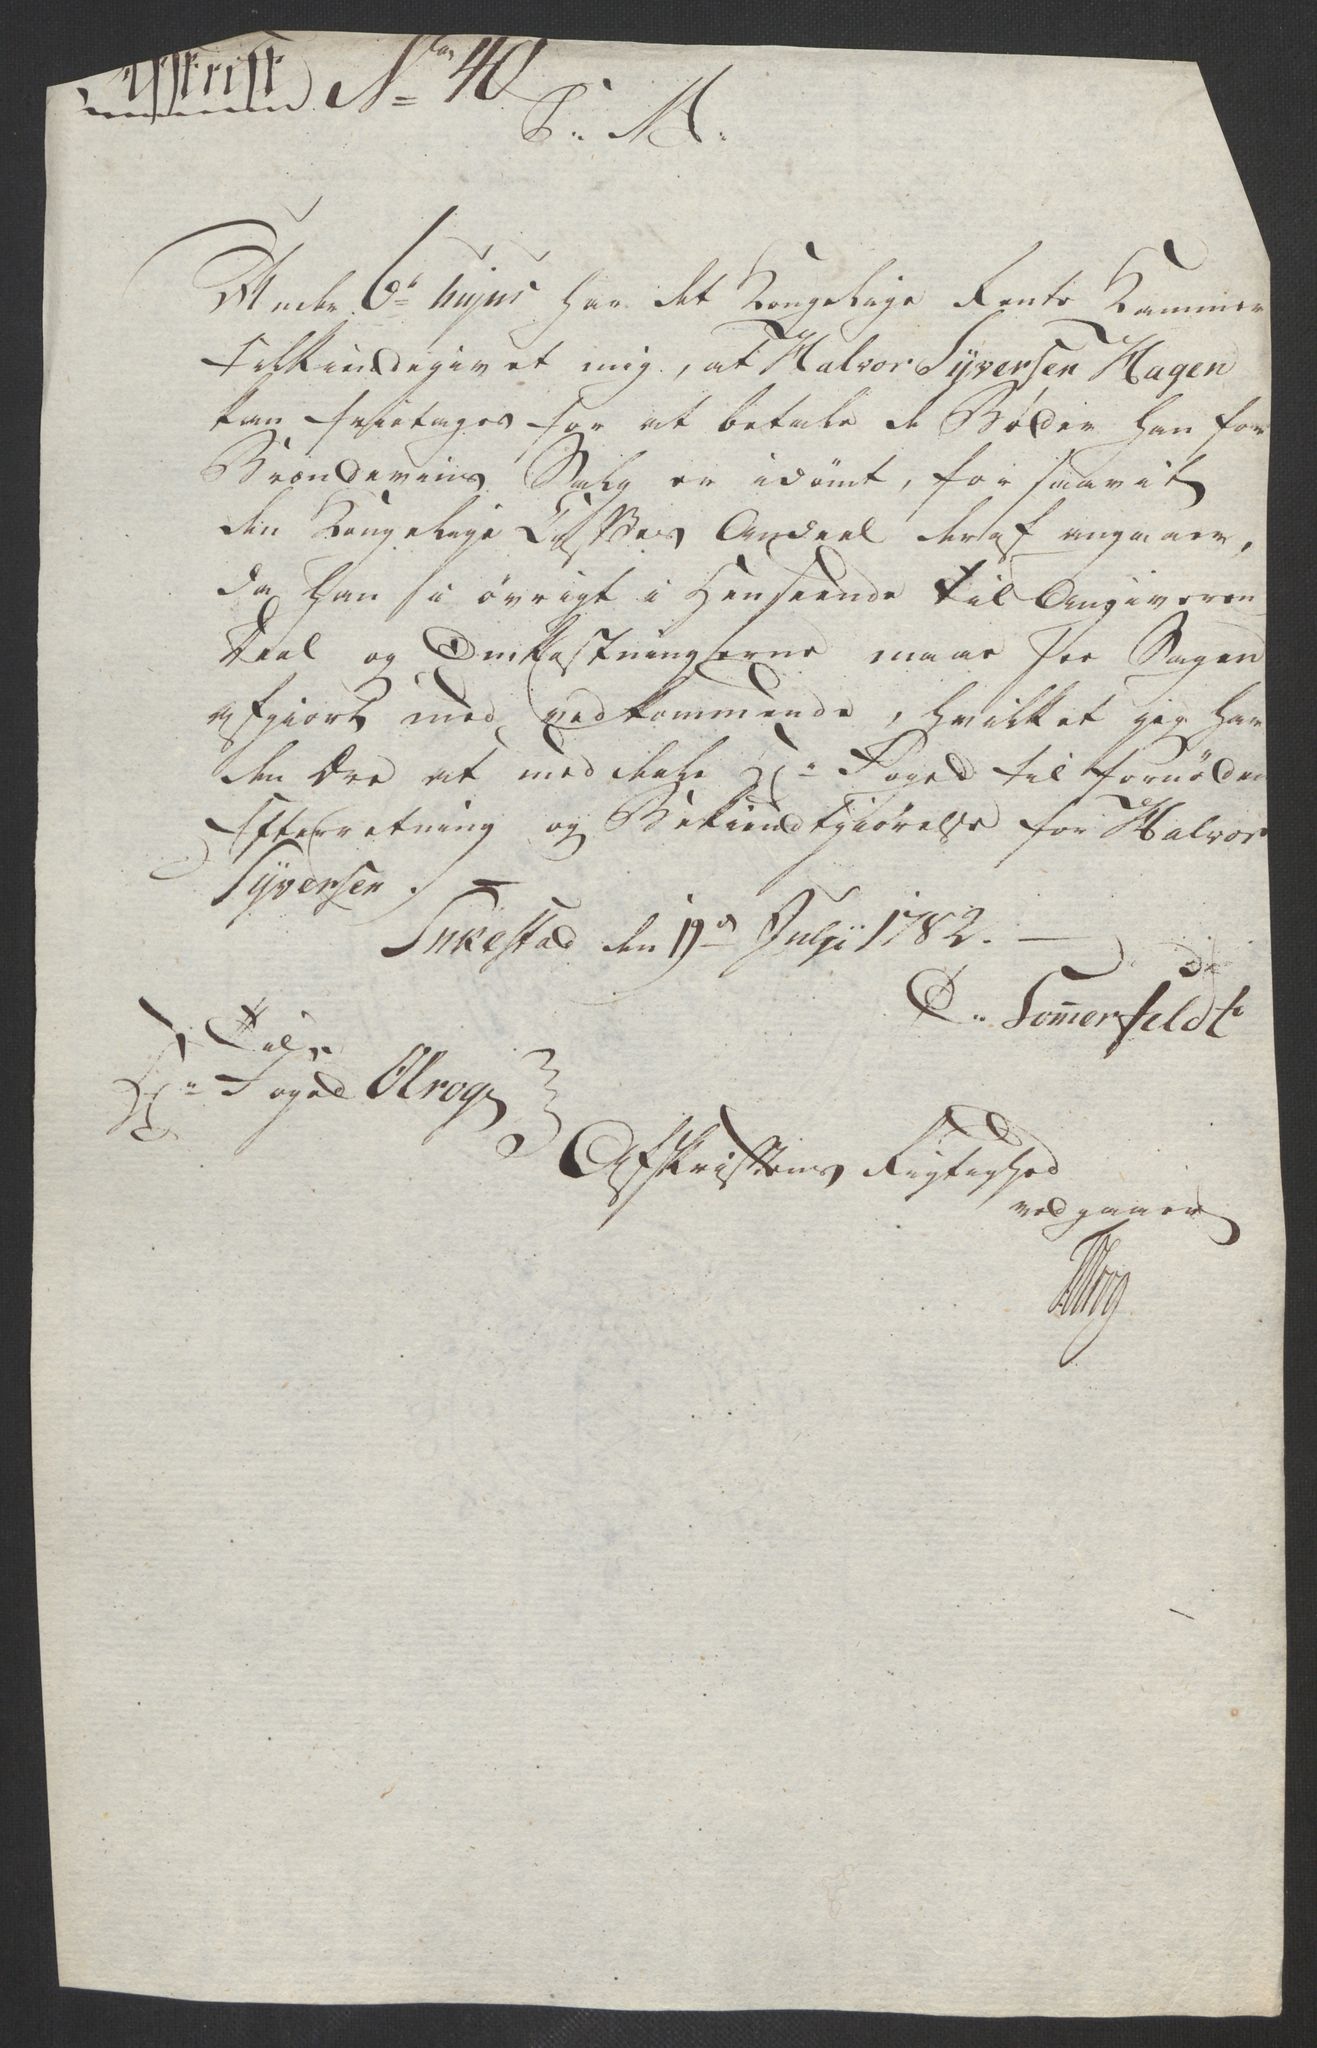 Afskrift No 40
P. M.
Under 6te hujus har det Kongelige Rente Kammer
tilkiendegivet mig, at Halvor Syversen Hagen
kan frietages for at betale de Bøder han for
Brændeviins Salg er idømt, for saavit
den Kongelige Casses Andeel deraf angaaer,
da han i øvrigt i Henseende til Angiveren
Deel og Omkostningerne maae see Sagen
afgiort med vedkommende, hvilket jeg har
den Ære at meddeele Hr. Foged til fornøden
Efterretning og Bekiendtgiørelse for Halvor
Syversen.
Sukestad den 19de Julii 1782.
C. Sommerfeldt
Til
Hr. Foged Wrog
Afskriftens Rigtighed
vedgaaer
Wrog